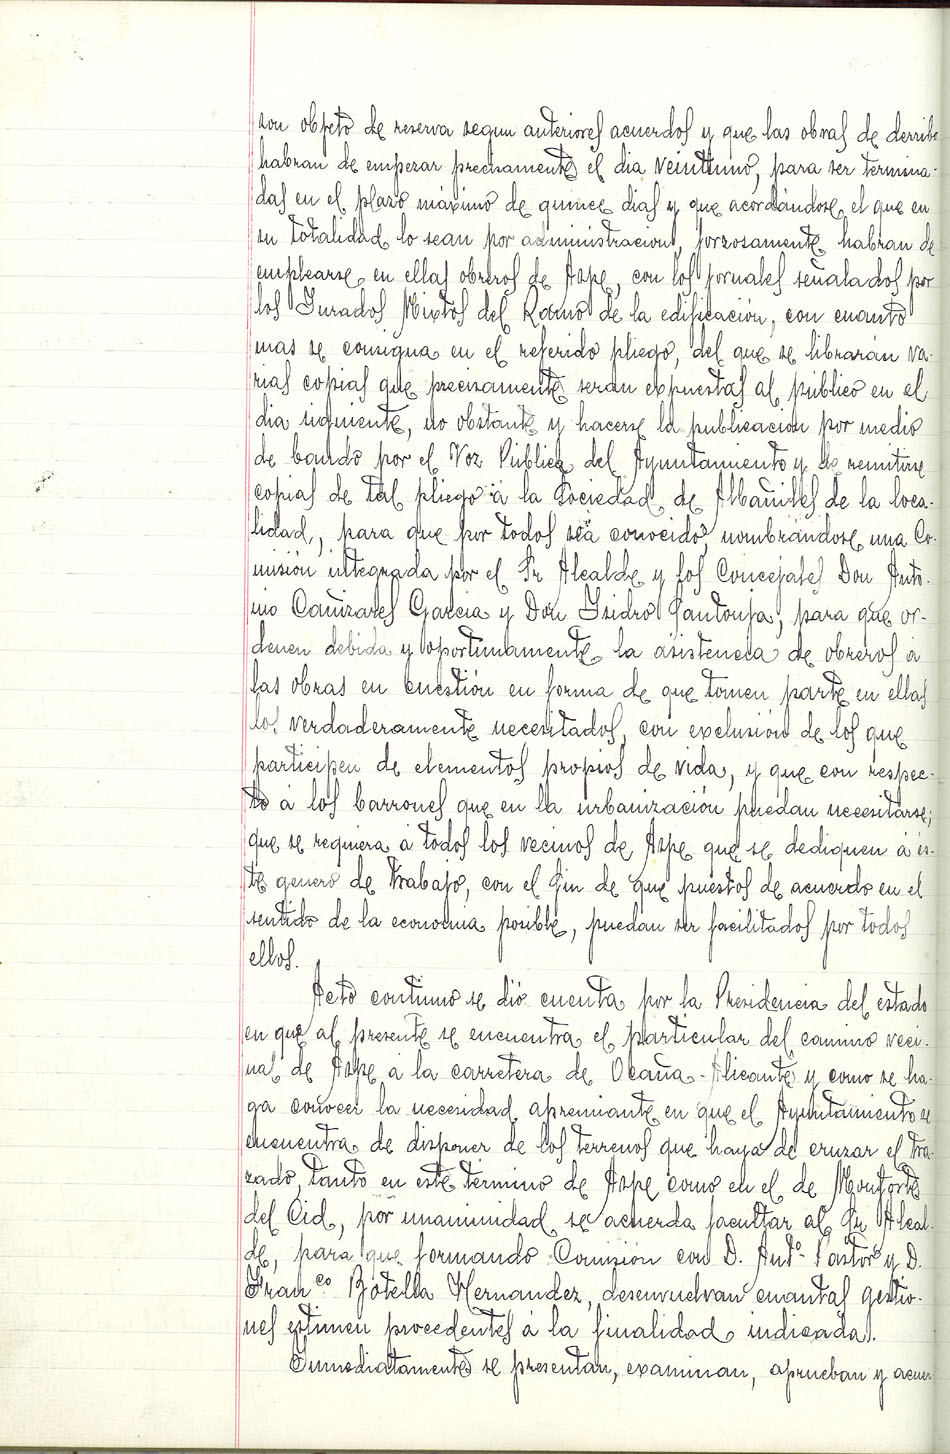 son objeto de reserva segun anteriores acuerdos y que las obras de derribo
habran de empezar precisamente el dia veintiuno, para ser termina-
das en el plazo máximo de quince dias y que acordándose el que en
su totalidad lo sean por administracion, forzosamente habran de
emplearse en ellas obreros de Aspe, con los jornales señalados por
los Jurados Mixtos del Ramo de la edificación, con cuanto
mas se consigna en el referido pliego, del que se librarán va-
rias copias que precisamente seran expuestas al público en el
dia siguiente, no obstante y hacerse la publicacion por medio
de bando por el Voz Publica del Ayuntamiento y de remitirse
copias de tal pliego á la Sociedad de Albañiles de la loca-
lidad, para que por todos sea conocido, nombrándose una Co-
misión integrada por el Sr Alcalde y los Concejales Don Anto-
nio Cañizares Garcia y Don Isidro Pantonja, para que or-
denen debida y oportunamente la asistencia de obreros á
las obras en cuestión en forma de que tomen parte en ellas
los verdaderamente necesitados, con exclusión de los que
participen de elementos propios de vida, y que con respec-
to á los barrones que en la urbanización puedan necesitarse,
que se requiera á todos los vecinos de Aspe que se dediquen á es-
te genero de trabajo, con el fin de que puestos de acuerdo en el
sentido de la economia posible, puedan ser facilitados por todos
ellos.
Acto continuo se dió cuenta por la Presidencia del estado
en que al presente se encuentra el particular del camino veci-
nal de Aspe á la carretera de Ocaña-Alicante y como se ha-
ga conocer la necesidad apremiante en que el Ayuntamiento se
encuentra de disponer de los terrenos que haya de cruzar el tra-
zado, tanto en este termino de Aspe como en el de Monforte
del Cid, por unanimidad se acuerda facultar al Sr Alcal-
de, para que formando Comisión con D. Antº Pastor y D.
Franco Botella Hernandez, desenvuelvan cuantas gestio-
nes estimen procedentes á la finalidad indicada.
Inmediatamente se presentan, examinan, aprueban y acuer